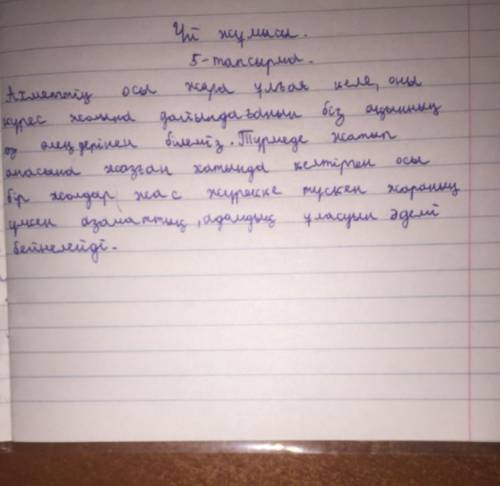 Үй жұмысы.
5-тапсырма.
Ахметтің осы жара ұлғая келе, оны
күрес жолына дайындағанын біз ақынның
өз өлеңдерінен білеміз. Түрмеде жатып
анасына жазған хатында келтірген осы
бір жолдар жас жүрекке түскен жараның
үлкен азаматтық, адамдық ұласуын әдемі
бейнелейді.